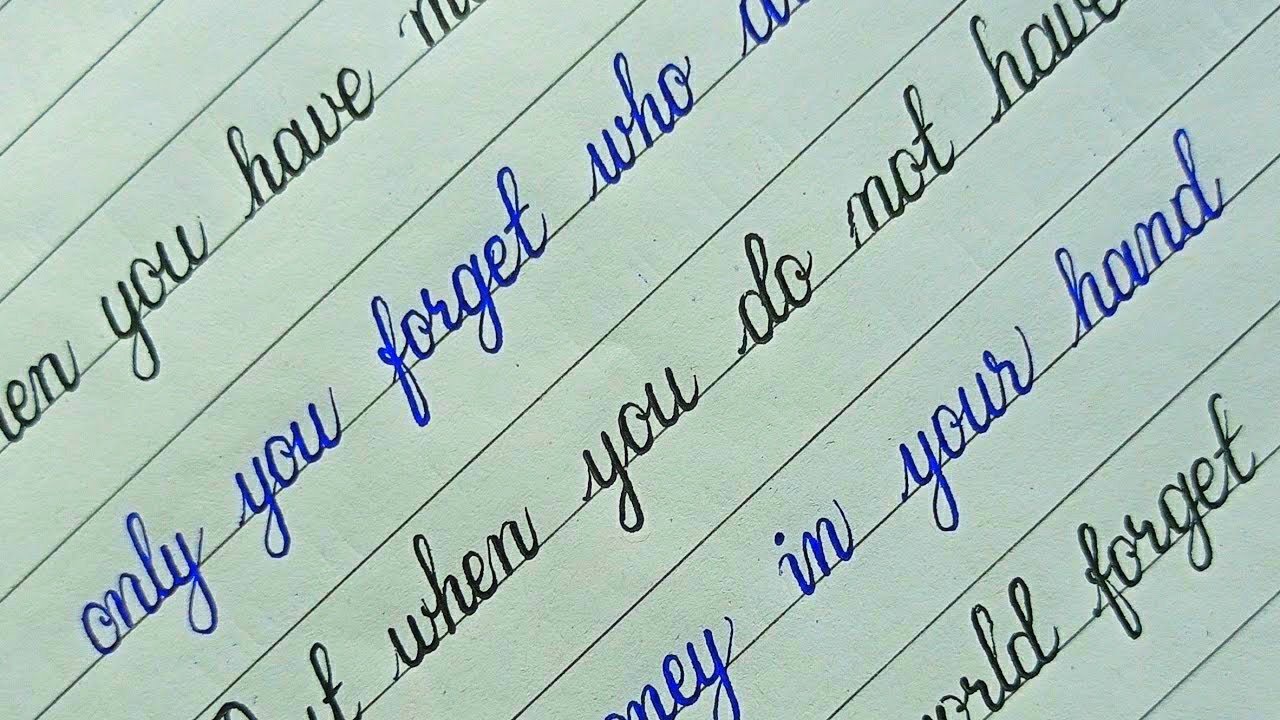 you have
only you forget who
when you do not have
in your hand
forget